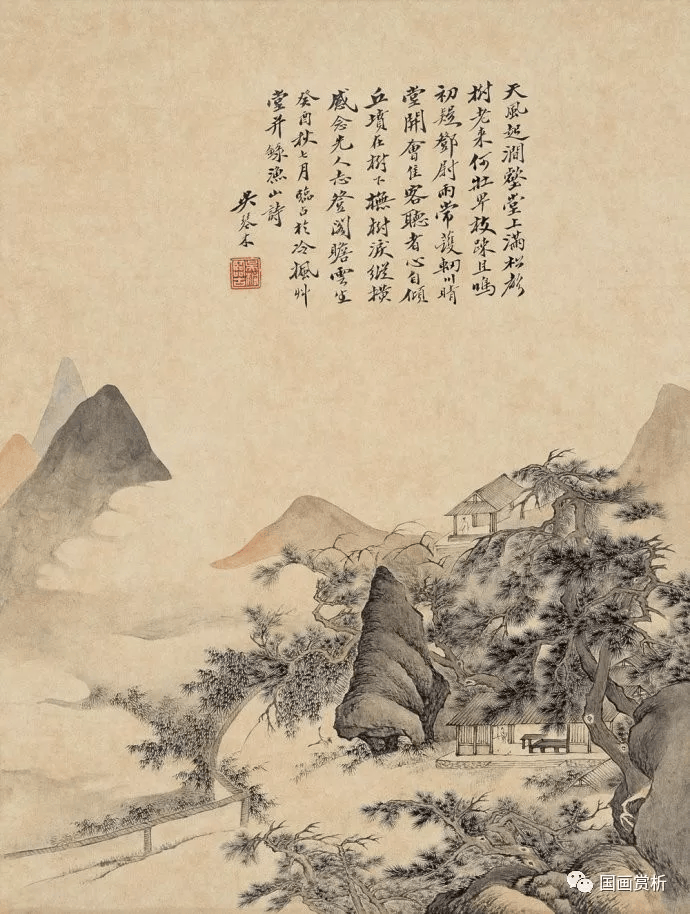 天風起澗壑堂上滿松聲
樹老来何壮枝踈且鳴
初疑鄧尉雨常護輞川晴
堂開會佳客聽者心自傾
丘墳在樹下撫樹淚縱横
感念先人志登閣瞻雲生
癸酉秋七月臨古於冷楓艸
堂并録漁山詩
吴琴木
国画赏析